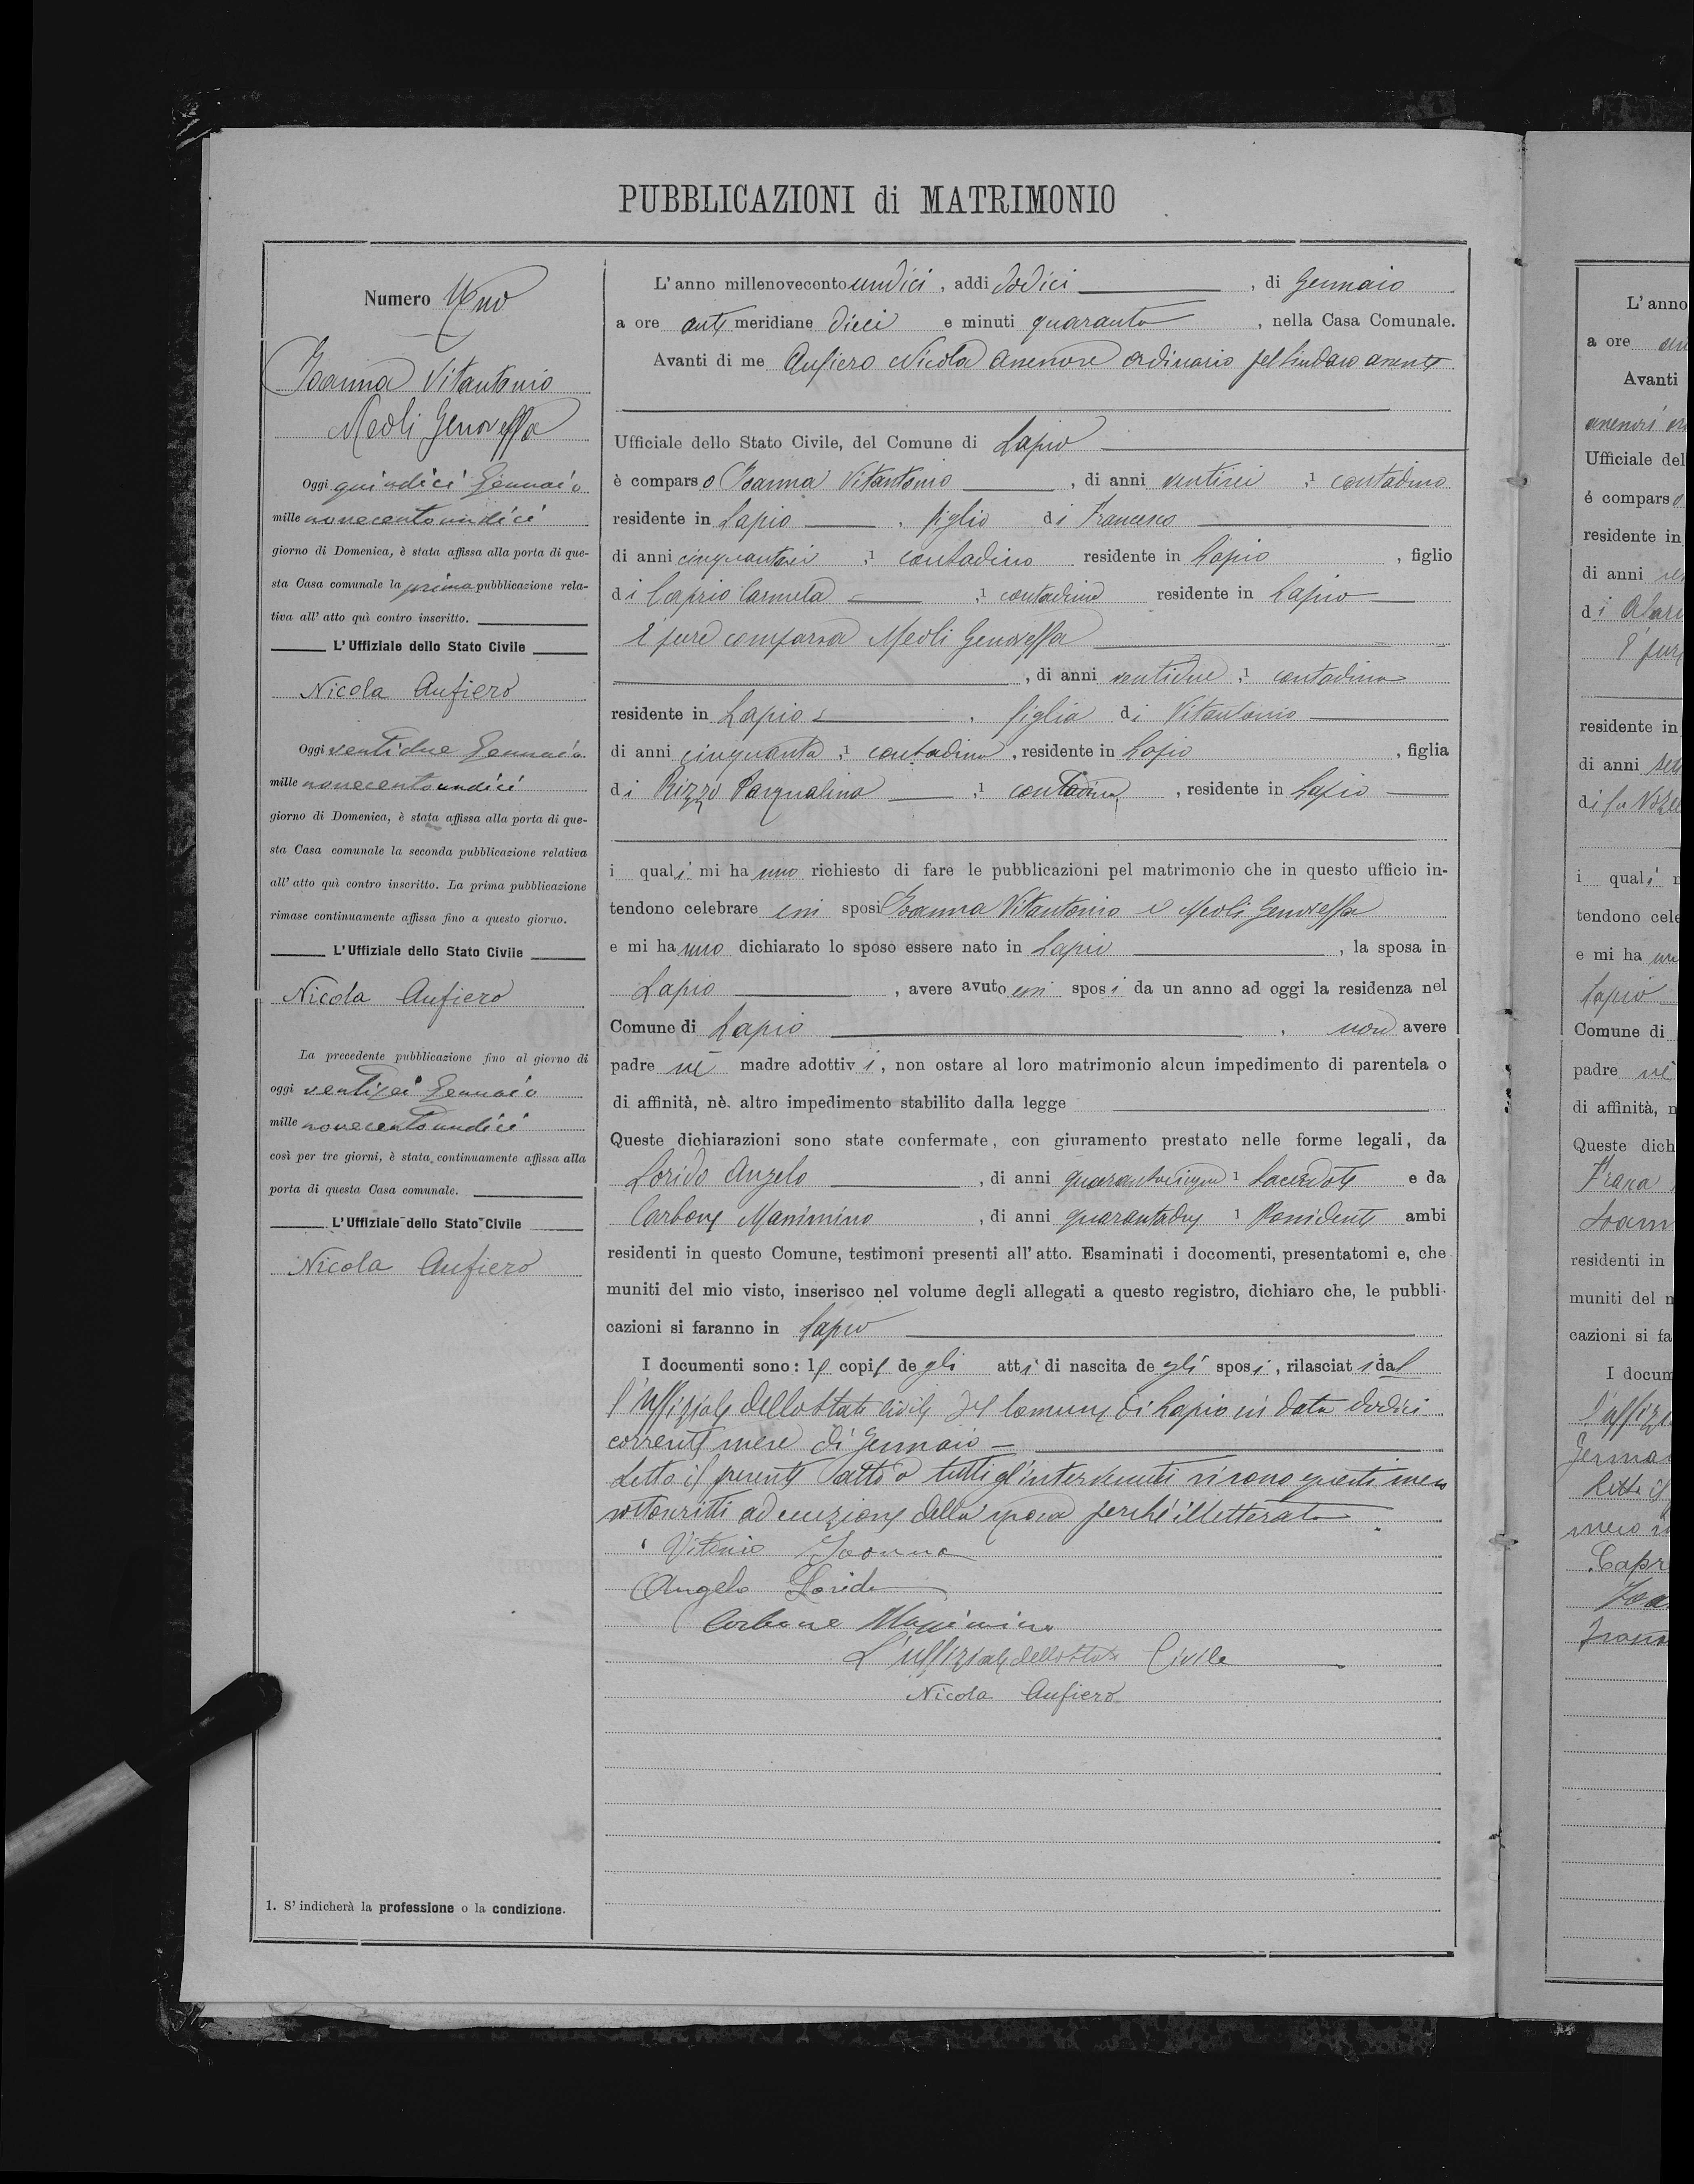 PUBBLICAZIONI di MATRIMONIO
Numero Uno
Ioanna Vitantonio
Meoli Genoveffa
Oggi quindici Gennaio
mille novecentoundici
giorno di Domenica, è stata affissa alla porta di que-
sta Casa comunale la prima pubblicazione rela-
tiva all' atto quì contro inscritto.
L'Uffiziale dello Stato Civile
Nicola Aufiero
Oggi ventidue Gennaio
mille novecentoundici
giorno di Domenica, è stata affissa alla porta di que-
sta Casa comunale la seconda pubblicazione relativa
all' atto quì contro inscritto. La prima pubblicazione
rimase continuamente affissa fino a questo giorno.
L'Uffiziale dello Stato Civile
Nicola Aufiero
La precedente pubblicazione fino al giorno di
oggi ventisei Gennaio
mille novecentoundici
così per tre giorni, è stata continuamente affissa alla
porta di questa Casa comunale.
L'Uffiziale dello Stato Civile
Nicola Aufiero
1. S' indicherà la professione o la condizione.
L' anno millenovecento undici, addi dodici, di Gennaio
a ore anti meridiane dieci e minuti quaranta, nella Casa Comunale.
Avanti di me Aufiero Nicola assessore ordinario pel Sindaco assente
Ufficiale dello Stato Civile, del Comune di Lapio
è comparso Ioanna Vitantonio, di anni ventisei, 1 contadino
residente in Lapio, figlio di Francesco
di anni cinquantasei, 1 contadino residente in Lapio, figlio
di Caprio Carmela, 1 contadina residente in Lapio
È pure comparsa Meoli Genoveffa
, di anni ventidue, 1 contadina
residente in Lapio, figlia di Vitantonio
di anni cinquanta, 1 contadino, residente in Lapio, figlia
di Rizzo Pasqualina, 1 contadina, residente in Lapio
i quali mi hanno richiesto di fare le pubblicazioni pel matrimonio che in questo ufficio in-
tendono celebrare essi sposi Ioanna Vitantonio e Meoli Genoveffa
e mi hanno dichiarato lo sposo essere nato in Lapio, la sposa in
Lapio, avere avuto essi sposi da un anno ad oggi la residenza nel
Comune di Lapio, non avere
padre nè madre adottivi, non ostare al loro matrimonio alcun impedimento di parentela o
di affinità, nè. altro impedimento stabilito dalla legge
Queste dichiarazioni sono state confermate, con giuramento prestato nelle forme legali, da
Lorido Angelo, di anni quarantacinque 1 Sacerdote e da
Carbone Massimino, di anni quarantadue 1 Possidente ambi
residenti in questo Comune, testimoni presenti all' atto. Esaminati i docomenti, presentatomi e, che
muniti del mio visto, inserisco nel volume degli allegati a questo registro, dichiaro che, le pubbli-
cazioni si faranno in Lapio
I documenti sono: le copie degli atti di nascita degli sposi, rilasciati dal
l'uffiziale dello Stato Civile del Comune di Lapio in data dodici
corrente mese di Gennaio
Letto il presente atto a tutti gl'intervenuti si sono questi meco
sottoscritti ad eccezione della sposa perchè illetterata
Vitonio Ioanna
Angelo Lorido
Carbone Massimino
L'uffiziale dello Stato Civile
Nicola Aufiero
L' anno
a ore
Avanti
Ufficiale del
é comparso
residente in
di anni
di
È pure
residente in
di anni
di fu
i quali
tendono cele
e mi ha
Lapio
Comune di
padre nè
di affinità, n
Queste dich
residenti in
muniti del m
cazioni si fa
I docum
l'uffizi
Gennai
Letto il